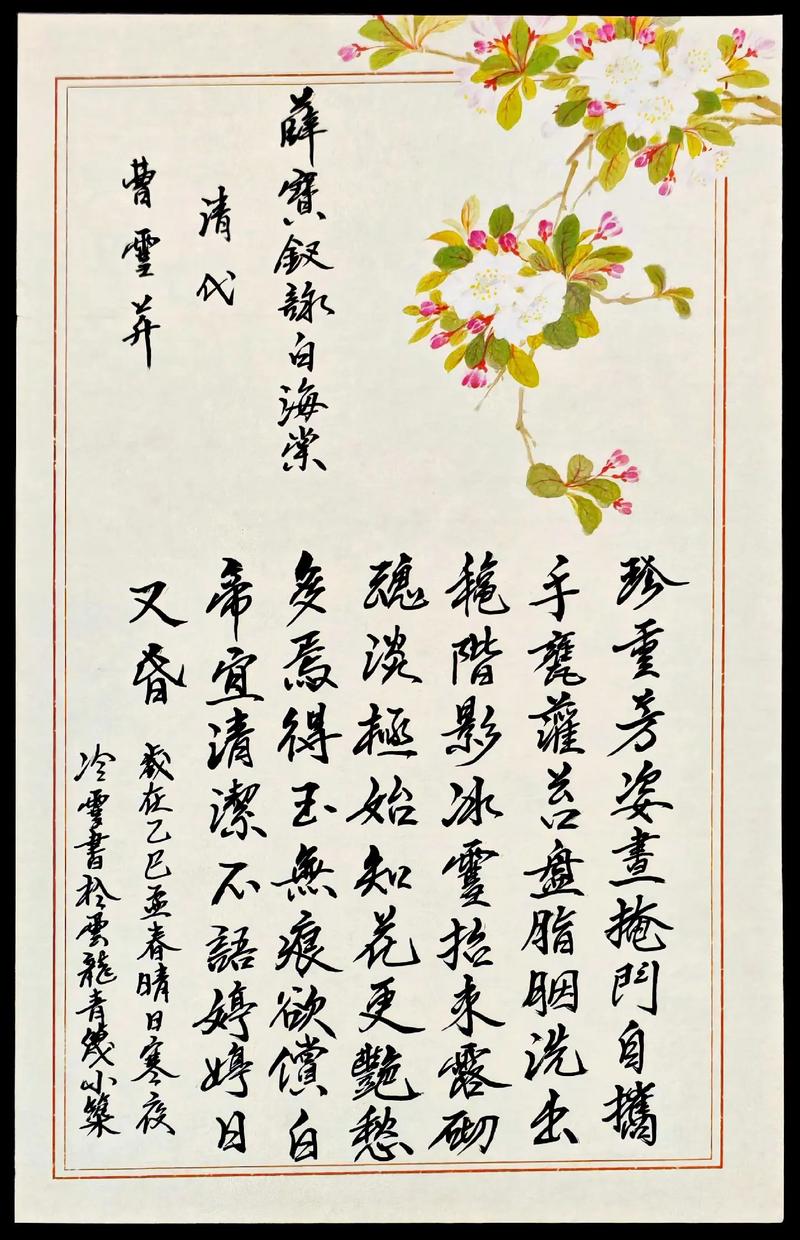 薛寶釵詠白海棠
清代
曹雪芹
珍重芳姿晝掩門自攜
手甕灌苔盤脂胭洗出
穐階影冰雪招來露砌
魂淡極始知花更艷愁
多焉得玉無痕欲償白
帝宜清潔不語婷婷日
又昏
歲在乙巳孟春晴日寒夜
冷雪書於雲龍青幾小築